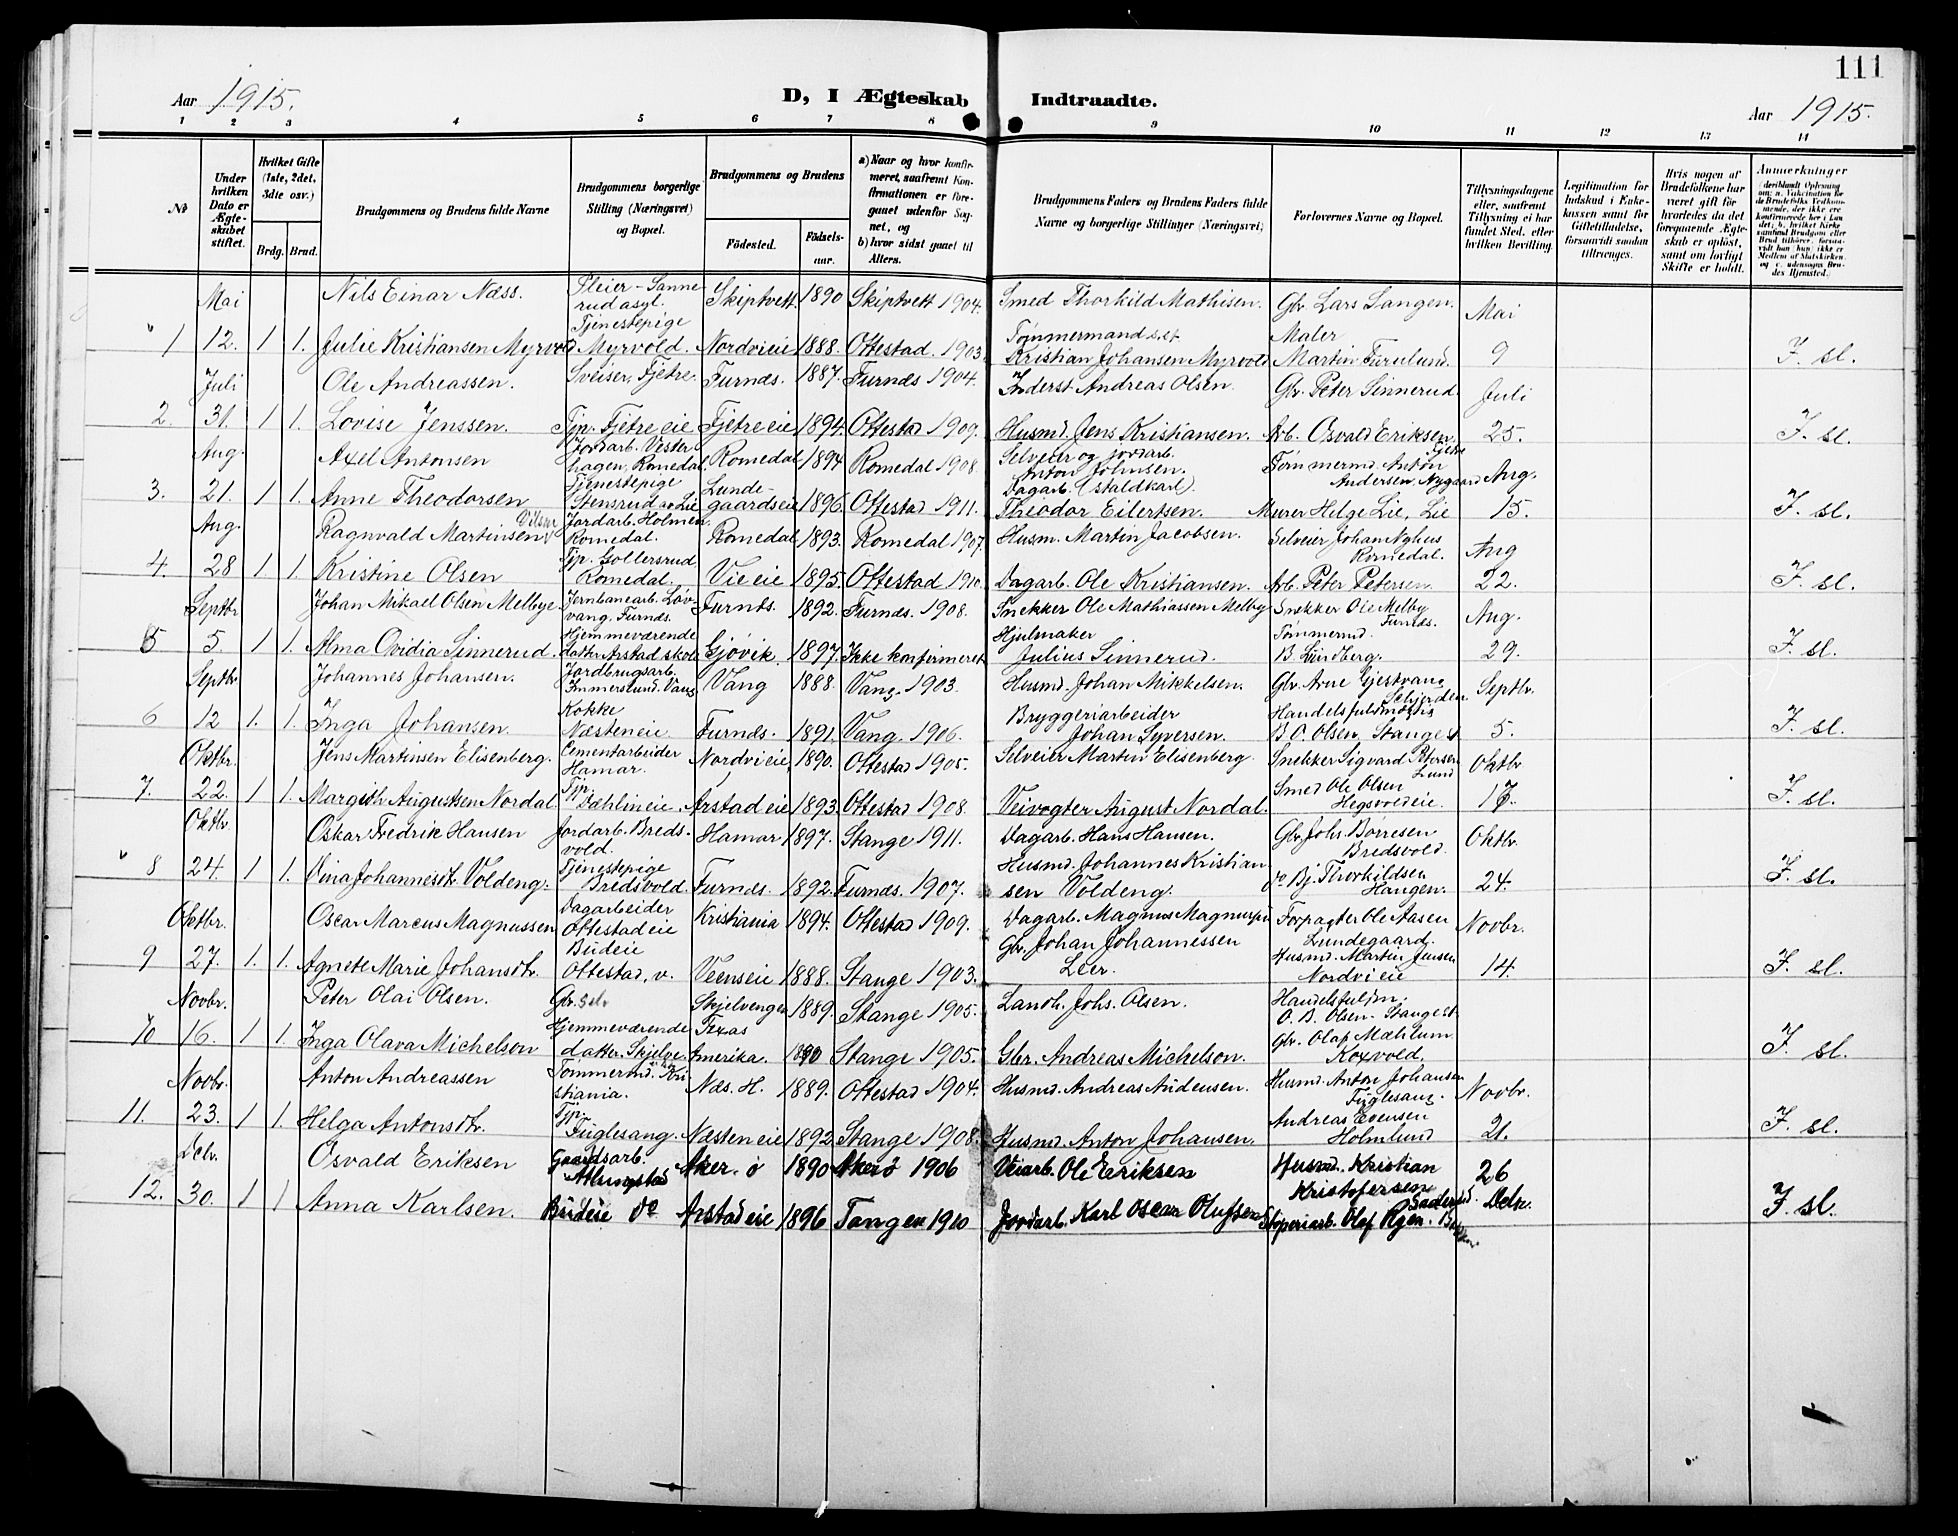 111
Aar 1915. D, I Ægteskab Indtraadte. Aar 1915.
1 2 3 4 5 6 7 8 9 10 11 12 13 14
No
Under hvilken Dato er Ægteskabet stiftet.
Hvilket Gifte (1ste, 2det, 3die osv.)
Brdg. Brud.
Brudgommens og Brudens fulde Navne
Brudgommens borgerlige Stilling (Næringsvei) og Bopæl.
Brudgommens og Brudens
Fødested. Fødsels-aar.
a) Naar og hvor konfirmeret, saafremt Konfirmationen er foregaaet udenfor Sognet, og
b) hvor sidst gaaet til Alters.
Brudgommens Faders og Brudens Faders fulde Navne og borgerlige Stillinger (Næringsvei)
Forlovernes Navne og Bopæl.
Tillysningsdagene eller, saafremt Tillysning ei har fundet Sted, efter hvilken Bevilling.
Legitimation for Indskud i Enkekassen samt for Giftetilladelse, forsaavidt saadan tiltrænges.
Hvis nogen af Brudefolkene har været gift før hvorledes da det foregaaende Ægteskab er opløst, samt om lovligt Skifte er holdt.
Anmerkninger
Mai Nils Einar Næss. Pleier-Sanne rud asyl. Skiptvett 1890 Skiptvett 1904. Smed Thorkild Mathisen. Gbr. Lars Langen. Mai
1 12. 1 1. Julie Kristiansen Myrvold Tjenestepige Myrvold. Nordvieie 1888. Ottestad. 1903. Tømmermand Kristian Johansen Myrvold Maler Martin Furulund. 9 F. sl.
Juli Ole Andreassen. Sveiser, Fjetre. Furnæs. 1887. Furnæs 1904. Inderst Andreas Olsen. Gbr. Peter Sinnerud. Juli
2. 31. 1 1. Lovise Jenssen. Tjp. Fjetre eie Fjetre eie 1894. Ottestad 1909. Husmd. Jens Kristiansen. Arb. Osvald Eriksen. Fjetre 25. F. sl.
Aug. Axel Antonsen Jordarb. Vesterhagen, Romedal Romedal 1894 Romedal 1908. Selveier og jordarb. Anton Johnsen. Tømmermd. Anton Andersen, Nygaard Aug.
3. 21. 1 1. Anne Theodorsen Tjenestepige Stensrud av Lie Lundegaardseie 1896. Ottestad 1911. Dagarb. (staldkarl). Theodor Eilertsen. Murer Helge Lie, Lie 15. F. sl.
Aug. Ragnvald Martinsen Jordarb. Holmen Romedal. Romedal 1893. Romedal 1907. Husm. Martin Jacobsen. Selveier Johan Nyhus Romedal. Aug
4. 28 1 1. Kristine Olsen Tjp. Gollersrud Romedal. Vieeie 1895. Ottestad 1910. Dagarb. Ole Kristiansen. Arb. Peter Petersen. 22. F. sl.
Septbr Johan Mikael Olsen Melbye Jernbanearb. Løvvang, Furnæs. Furnæs. 1892. Furnæs. 1908. Snekker Ole Mathiassen Melby Snekker Ole Melby Furnæs. Aug.
5 5. 1 1. Alma Ovidia Sinnerud. Hjemmeværende datter Arstad skole Gjøvik. 1897. Ikke konfirmeret Hjulmaker Julius Sinnerud. Tømmermd. B. Lundberg. 29. F. sl.
Septbr Johannes Johansen. Jordbrugsarb. Immerslund. Vang Vang 1888. Vang. 1903. Husmd. Johan Mikkelsen. Gbr. Arne Gjestvang Septbr.
6 12 1. 1. Inga Johansen Kokke Næsteneie Furnæs. 1891. Vang. 1906. Bryggeriarbeider Johan Syversen. Handelsfuldmægtig B. O. Olsen, Stange st 5. F. sl.
Oktbr. Jens Martinsen Elisenberg. Cementarbeider Hamar. Nordvieie 1890. Ottestad 1905. Selveier Martin Elisenberg. Snekker Sigvard Petersen Lund Oktbr
7. 22. 1 1. Margith Augustsen Nordal Tjp. Dæhlineie. Arstadeie 1893. Ottestad 1908. Veivogter August Nordal. Smed Ole Olsen Hegsvoldeie. 17. F. sl.
Oktbr. Oskar Fredrik Hansen Jordarb. Bredsvold. Hamar 1897. Stange 1911. Dagarb. Hans Hansen. Gbr. Johs. Børresen Bredsvold. Oktbr.
8 24. 1 1. Vina Johannesdtr. Voldeng. Tjenestepige Bredsvold. Furnæs. 1892. Furnæs. 1907. Husmd. Johannes Kristiansen Voldeng. do Bj. Thorkildsen Haugen. 24. F. sl.
Oktbr. Oscar Marcus Magnussen Dagarbeider Ottestadeie Kristiania 1894. Ottestad 1909. Dagarb. Magnus Magnussen Forpagter Ole Aasen Lundegaard. Novbr.
9 27. 1. 1. Agnete Marie Johansdtr. Budeie Ottestad, v. Veenseie 1888. Stange 1903. Gbr. Johan Johannessen Leer. Husmd. Martin Jensen Nordvieie 14. F. sl.
Novbr. Peter Olai Olsen. Gbr. Skjelvenger 1889. Stange 1905. Landh. Johs. Olsen. Handelsfuldm. O. B. Olsen. Stange st
10 16. 1 1. Inga Olava Michelson Hjemmeværende datter. Skjelve Texas Amerika. 1890 Stange 1905. Gbr. Andreas Michelson. Gbr. Olaf Mæhlum Koxvold. F. sl.
Novbr. Anton Andreassen Tømmermd. Kristiania. Næs. H. 1889. Ottestad 1904. Husmd. Andreas Andersen. Husmd. Anton Johansen Fuglesang. Novbr.
11. 23. 1 1. Helga Antonsdtr. Tjp. Fuglesang. Næsteneie 1892 Stange 1908. Husmd. Anton Johansen. Andreas Evensen Holmlund 21. F. sl.
Debr. Osvald Eriksen Gaardsarb. Atlungstad Aker. ø 1890 Aker ø 1906 Veiarb. Ole Eriksen Husmd. Kristian Kristofersen 26
12. 30. 1 1 Anna Karlsen. Budeie do Arstadeie 1896 Tangen 1910 Jordarb. Karl Oscar Olufsen Støperiarb. Olaf Rgen. Debr. F. sl.